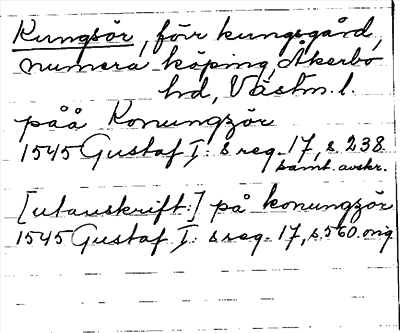 Kungsör, förr kungsgård,
numera köping Åkerbo
hd, Västm. l.
påå Konungzör
1545 Gustaf I:s reg. 17, s. 238.
samt. avskr.
[utanskrift:] på konungzör
1545 Gustaf I:s reg. 17, s. 560. orig